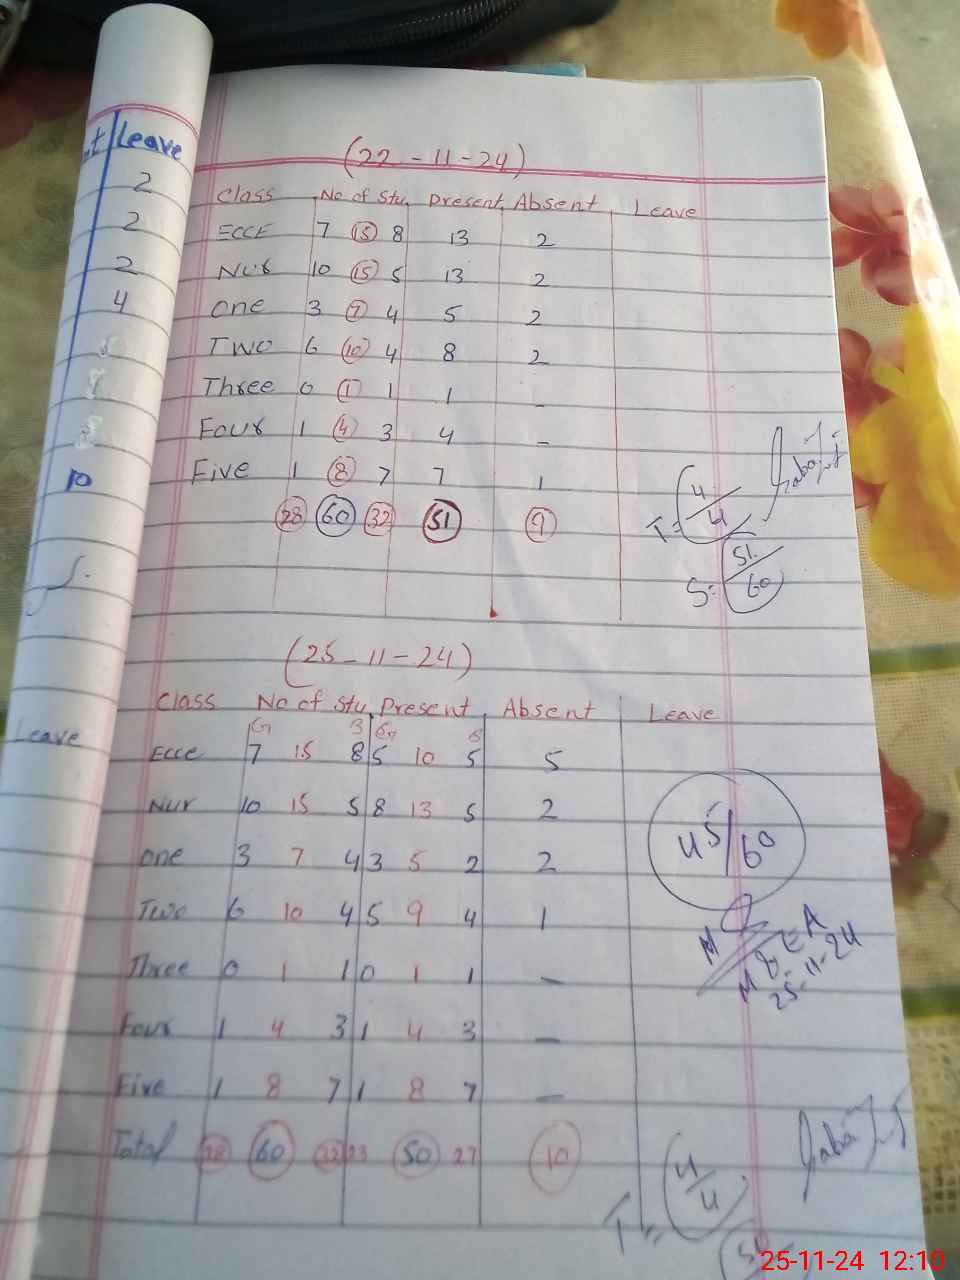 Leave
2
2
2
4
10
Leave
(22-11-24)
Class No of Stu Present Absent Leave
ECCE 7 15 8 13 2
Nur 10 15 5 13 2
One 3 7 4 5 2
Two 6 10 4 8 2
Three 0 1 1 1 -
Four 1 4 3 4 -
Five 1 8 7 7 1
28 60 32 51 9
T= 4/4
S: 51/60
(25-11-24)
Class No of Stu Present Absent Leave
G B G B
Ecce 7 15 8 5 10 5 5
Nur 10 15 5 8 13 5 2
One 3 7 4 3 5 2 2
Two 6 10 4 5 9 4 1
Three 0 1 1 0 1 1 -
Four 1 4 3 1 4 3 -
Five 1 8 7 1 8 7 -
Total 28 60 32 23 50 27 10
45/60
MEA
25-11-24
T= 4/4
25-11-24 12:10